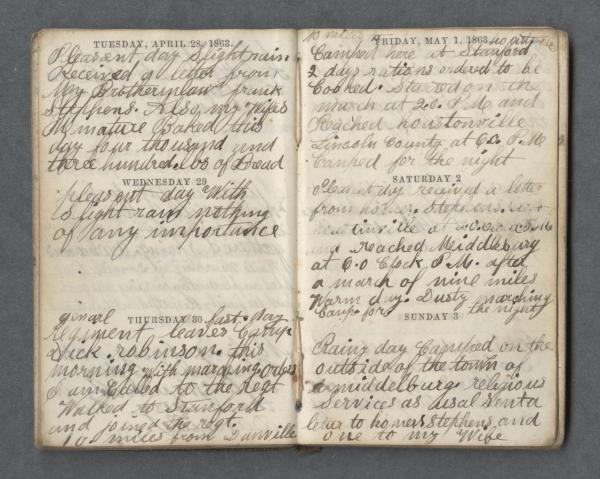 TUESDAY, APRIL 28, 1863.
Pleasent day slight rain
Received a letter from
My Brotherinlaw frank
Stephens. Also my Wifes
Minature Baked this
day four thousand and
three hundred lbs of Bread
WEDNESDAY 29
pleasent day With
Slight rain nothing
of any importance
THURSDAY 30
ginarl fast day
Regiment leaves Camp
Dick robinson this
morning With marching Orders
I am Called to the Regt
Walked to Stanford
and joined the regt.
10 miles from Danville
10 miles
FRIDAY, MAY 1, 1863.
Camped here at Stanford
2 days rations ordered to be
Cooked. Started on the
march at 2.O. P.M and
Reached houstonville
Lincoln County at 6 O. P.M.
Camped for the night
SATURDAY 2
Pleasent day received a letter
from homer Stephens
at
and Reached Middleburg
at 6.0 Clock P.M. after
a march of nine miles
Warm day. Dusty marching
Camp for the night
SUNDAY 3
Rainy day Camped on the
outside of the town of
middelburg religious
Services as Usal Sent a
letter to homer Stephens and
one to my Wife